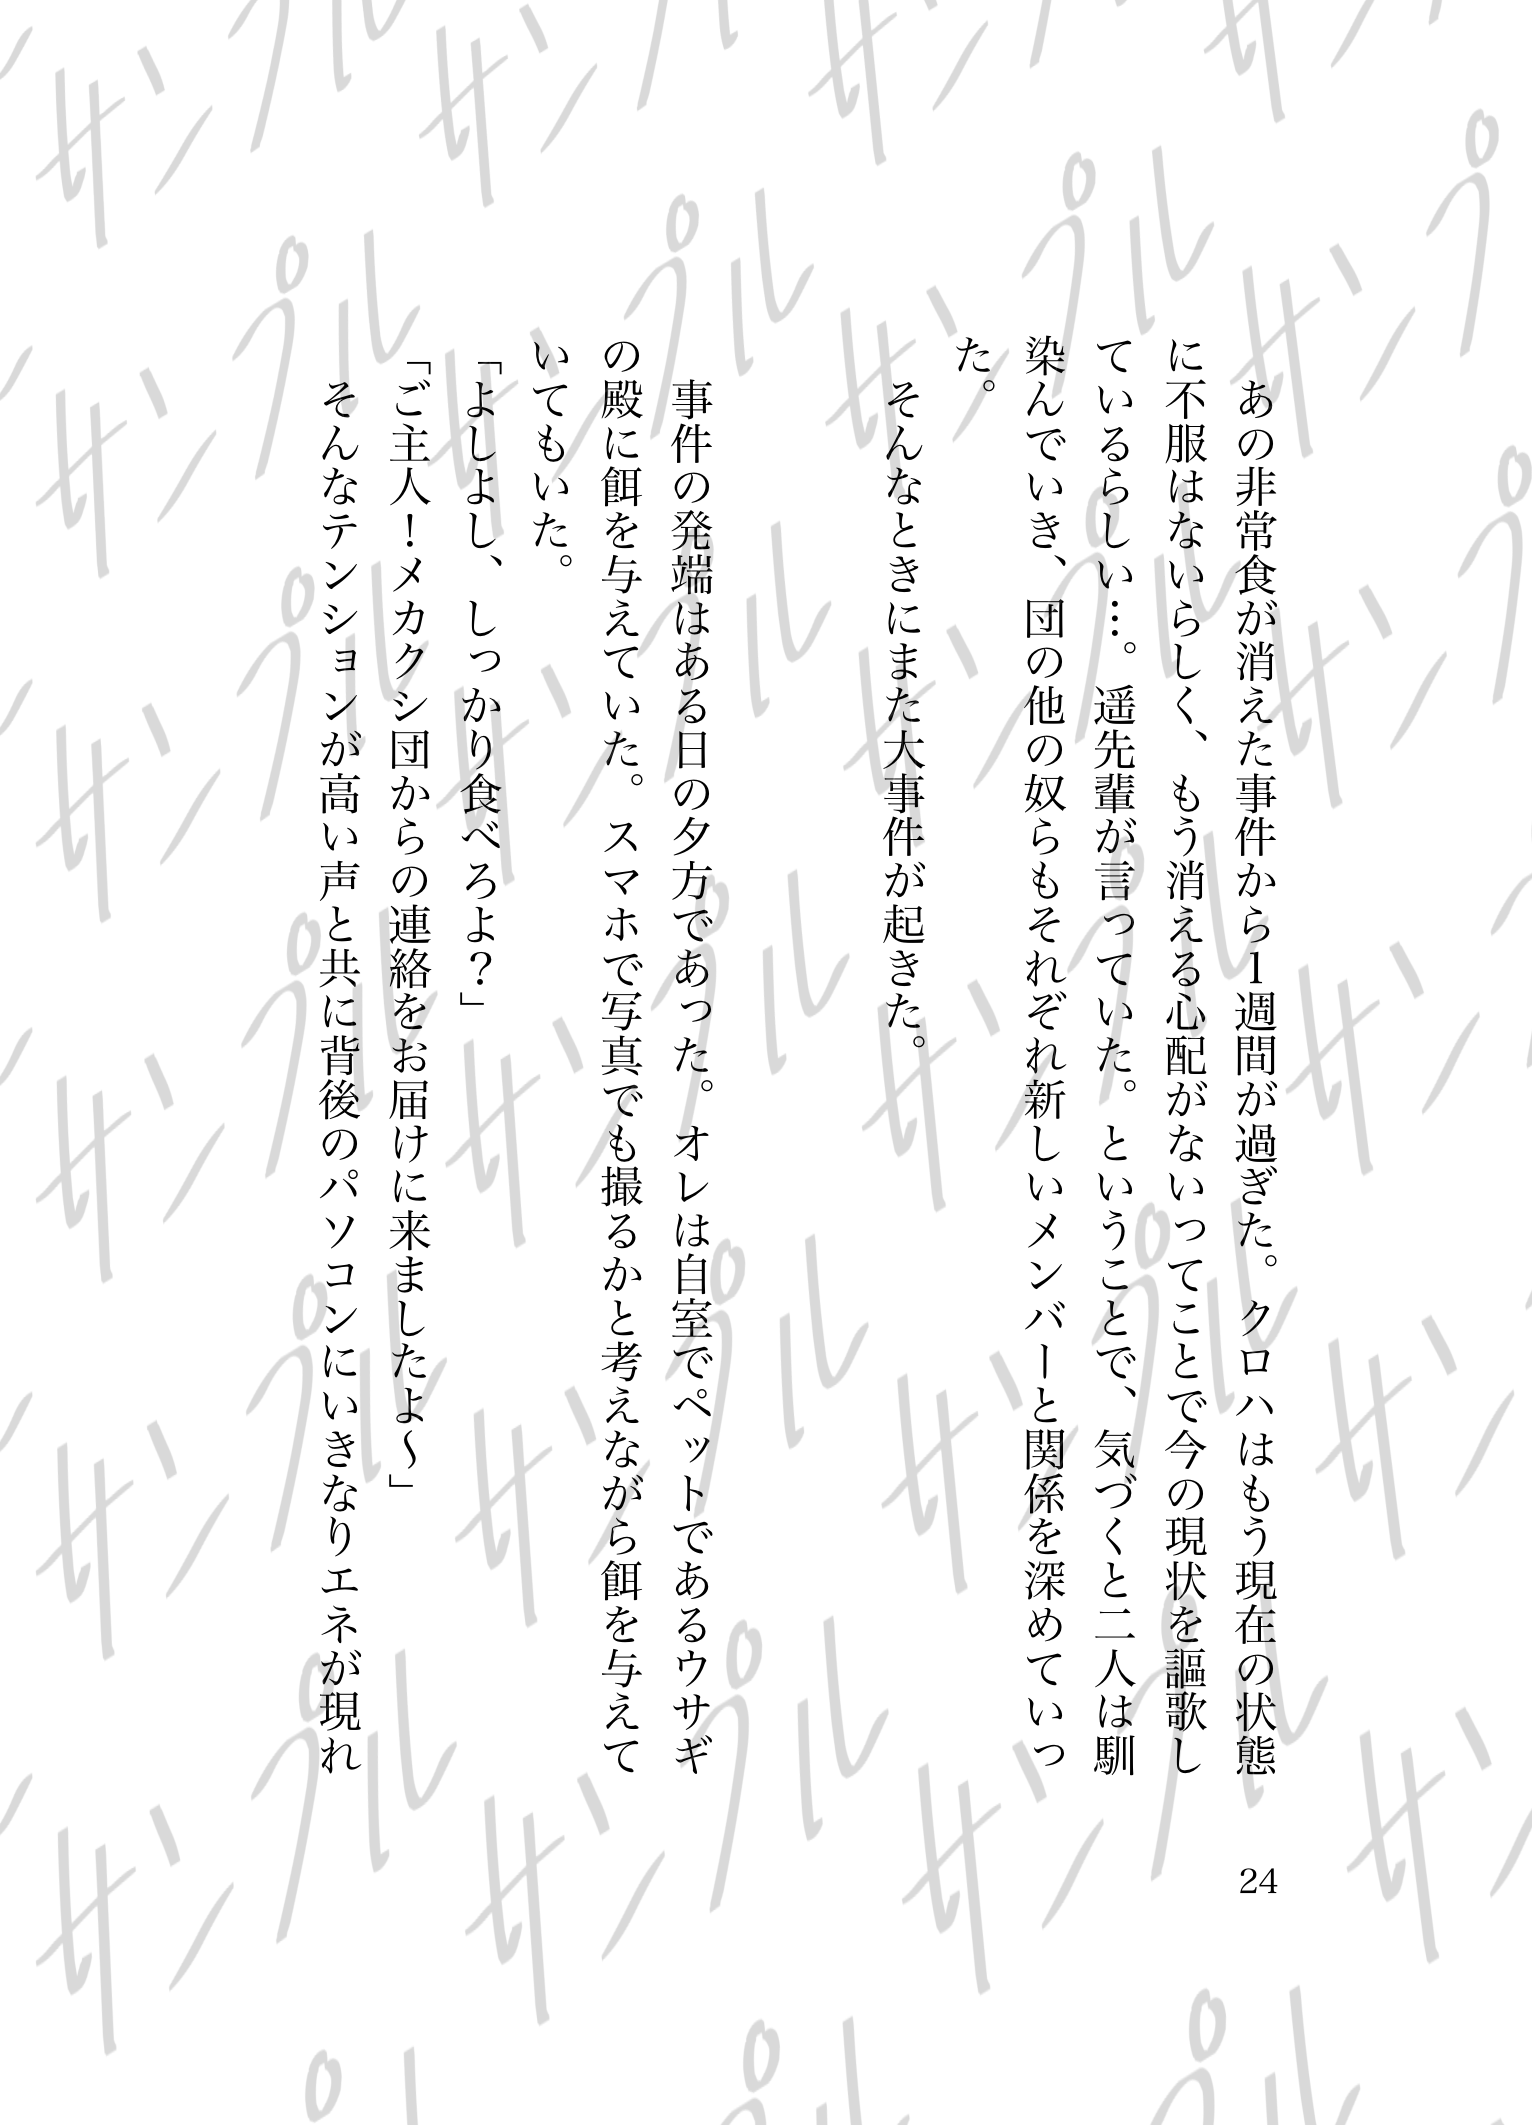 あの非常食が消えた事件から1週間が過ぎた。クロハはもう現在の状態
に不服はないらしく、もう消える心配がないってことで今の現状を謳歌し
ているらしい…。遥先輩が言っていた。ということで、気づくと二人は馴
染んでいき、団の他の奴らもそれぞれ新しいメンバーと関係を深めていっ
た。
そんなときにまた大事件が起きた。
事件の発端はある日の夕方であった。オレは自室でペットであるウサギ
の殿に餌を与えていた。スマホで写真でも撮るかと考えながら餌を与えて
いてもいた。
「よしよし、しっかり食べろよ？」
「ご主人！メカクシ団からの連絡をお届けに来ましたよ～」
そんなテンションが高い声と共に背後のパソコンにいきなりエネが現れ
24
サンプル